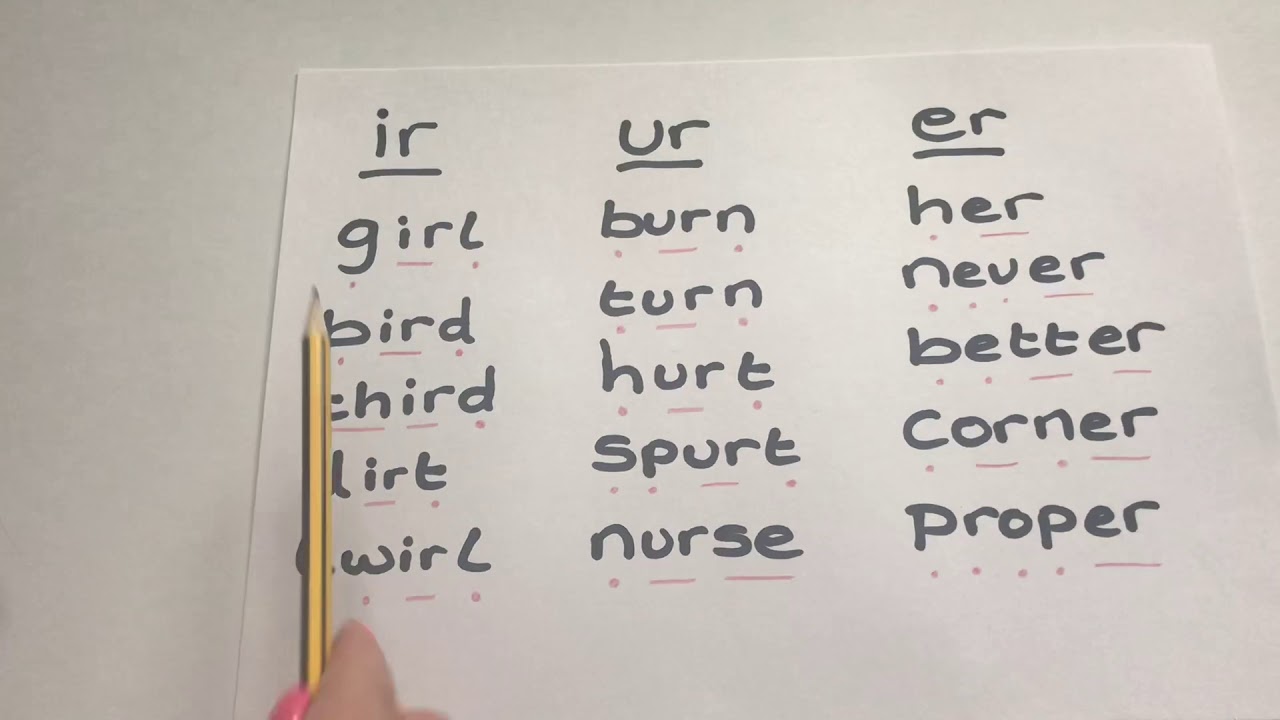 ir
girl
bird
third
dirt
ur
burn
turn
hurt
spurt
nurse
er
her
never
better
corner
proper